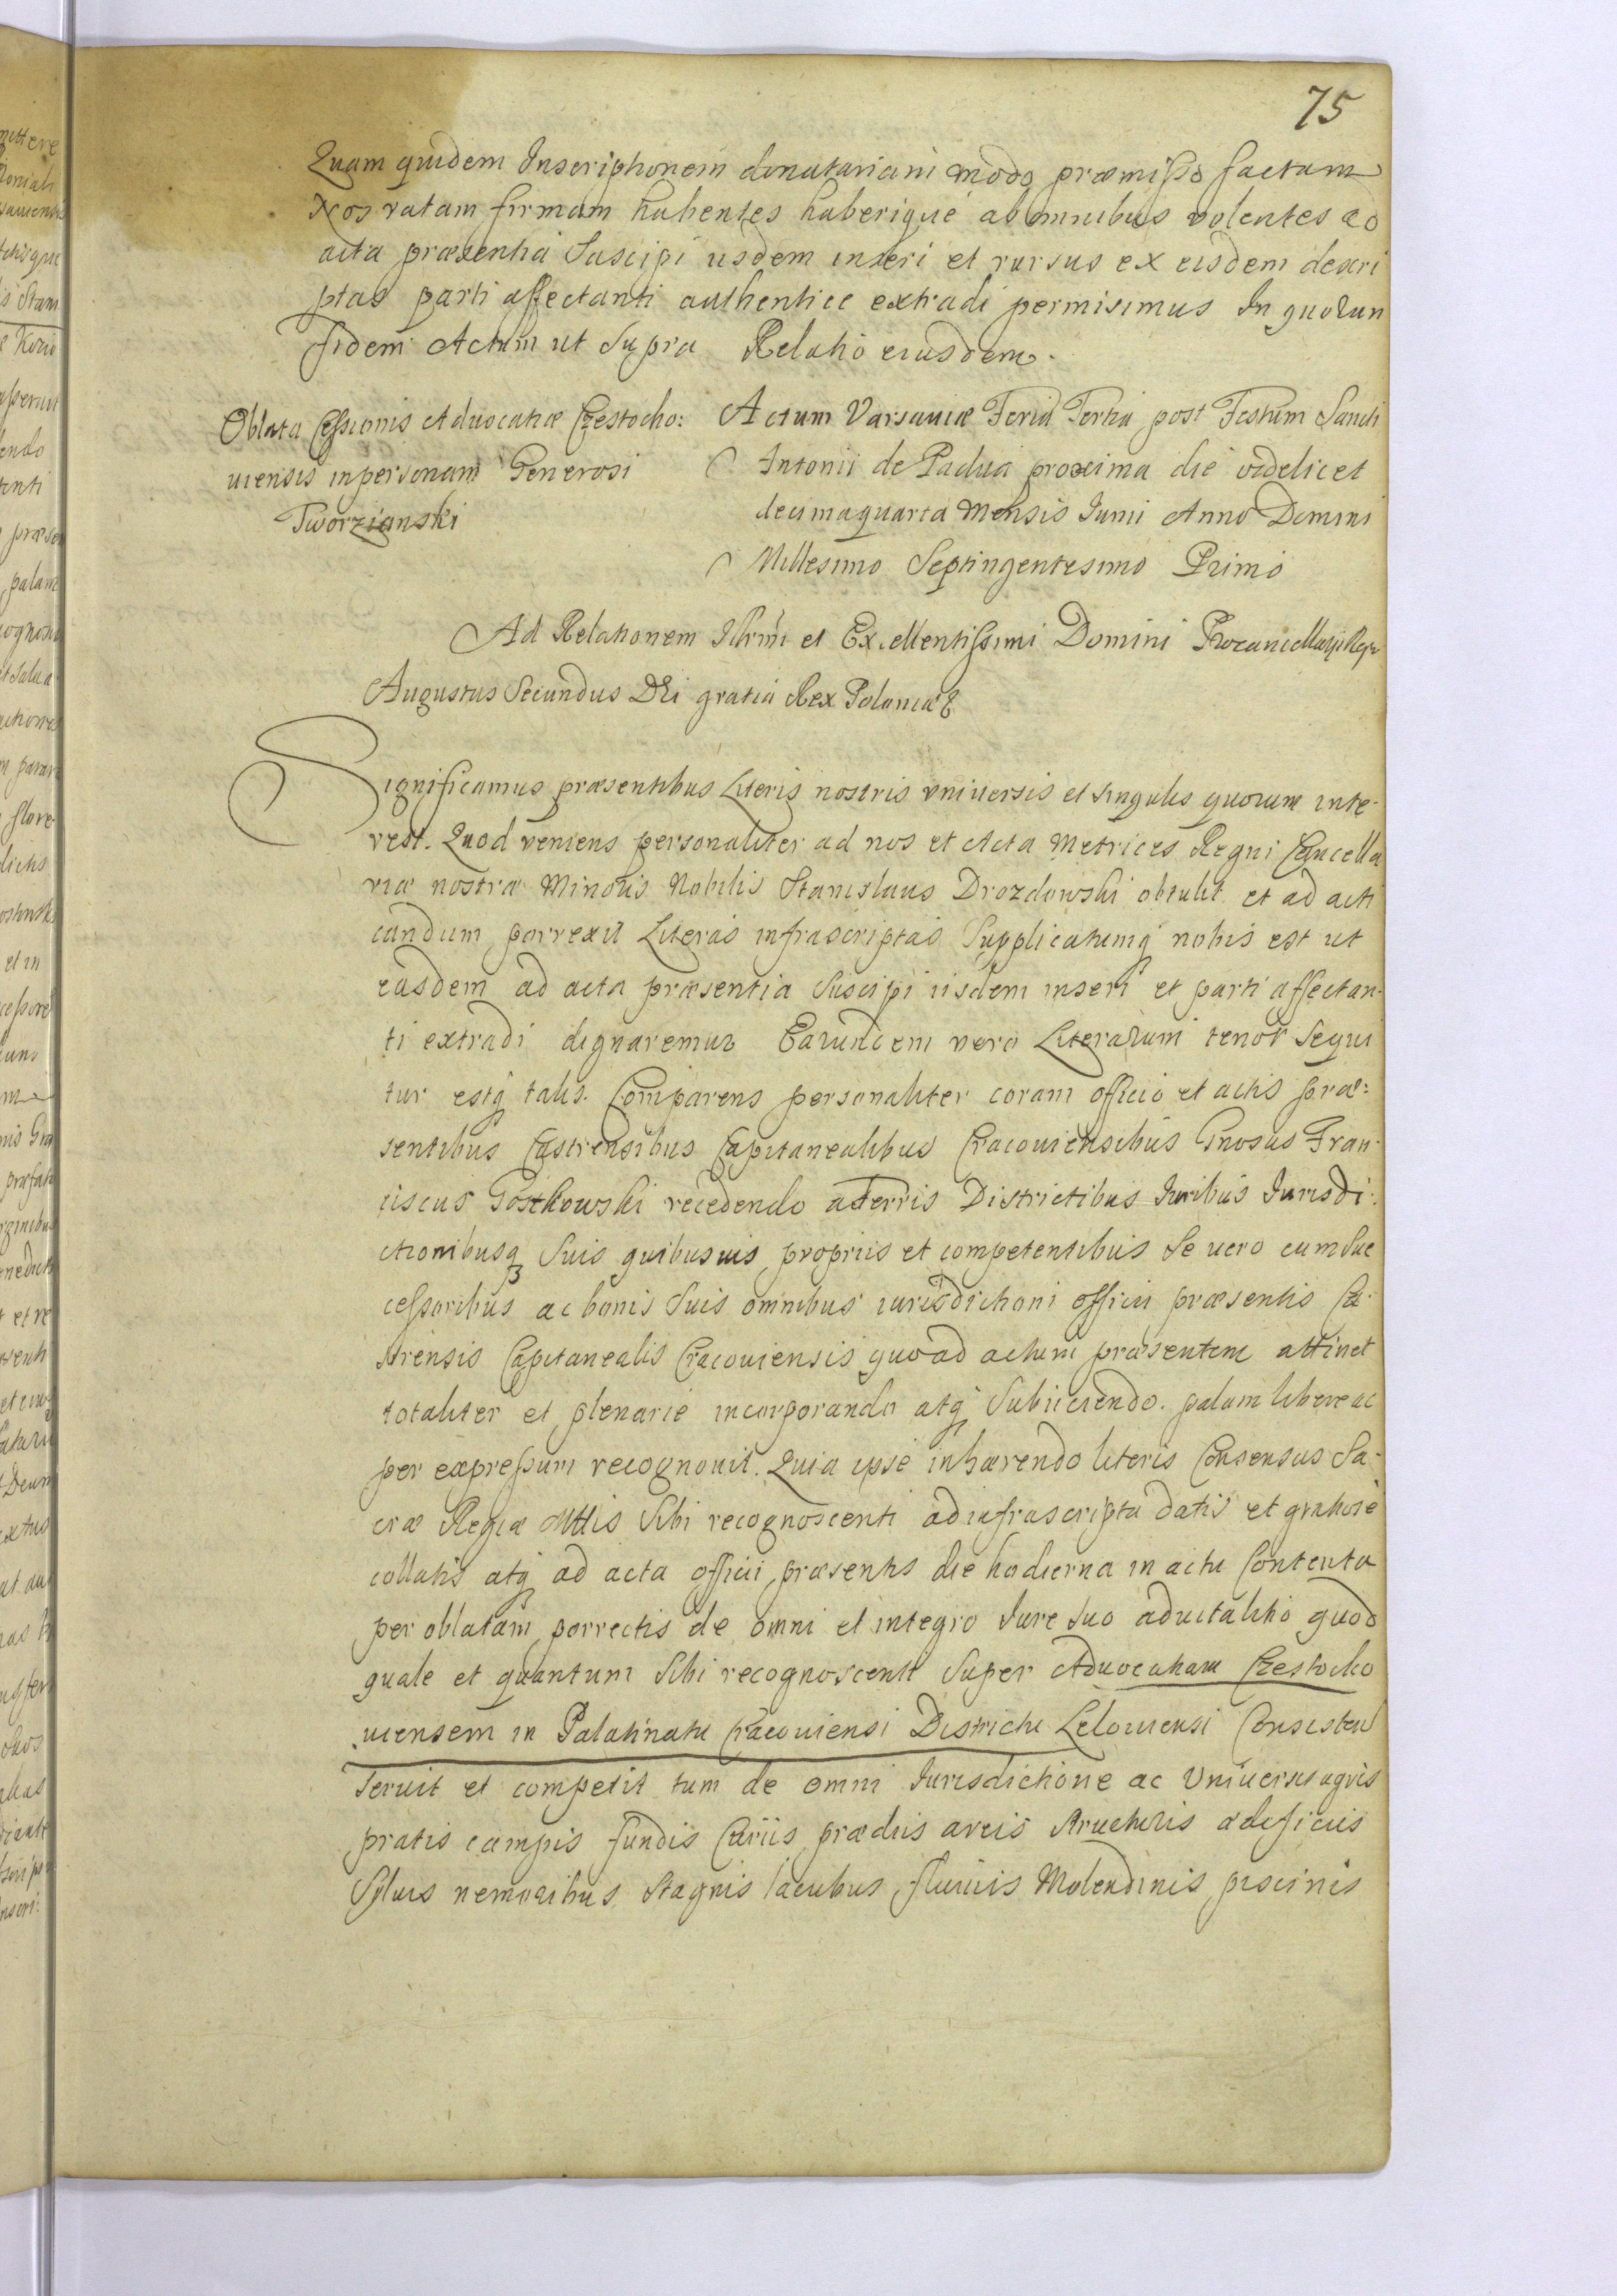 75
Quam quidem Inscriptionem donatariam modo præmisso factam
Nos ratam firmam habentes haberique ab omnibus volentes ad
acta præsentia Suscipi iisdem inseri et rursus ex eisdem descri
ptas parti affectanti authentice extradi permisimus In quorum
fidem Actum ut Supra Relatio eiusdem.
Oblata Cessionis Aduocatiæ Czestocho:
uiensis in personam Generosi
Tworzianski
Actum Varsauiæ Feria Tertia post Festum Sancti
Antonii de Padua proxima die videlicet
decima quarta Mensis Iunii Anno Domini
Millesimo Septingentesimo Primo
Ad Relationem Illrmi et Excellentissimi Domini Procancellarij Regni
Augustus Secundus DEi gratia Rex Poloniæ
Significamus præsentibus Literis nostris vniuersis et singulis quorum inte-
rest. Quod veniens personaliter ad nos et Acta Metrices Regni Cancella
riæ nostræ Minoris Nobilis Stanislaus Drozdowski obtulit et ad acti
candum porrexit Literas infrascriptas Supplicatumq nobis est ut
easdem ad acta præsentia Suscipi iisdem inseri et parti affectan-
ti extradi dignaremur Earundem vero Literarum tenor Sequi
tur estq talis. Comparens personaliter coram officio et actis præ:
sentibus Castrensibus Capitanealibus Cracouiensibus Gnosus Fran-
ciscus Gostkowski recedendo a Terris Districtibus Iuribus Iurisdi-
ctionibusq Suis quibusuis propriis et competentibus Se uero cum Suc
cessoribus ac bonis Suis omnibus iurisdictioni officii præsentis Ca-
strensis Capitanealis Cracouiensis quoad actum præsentem attinet
totaliter et plenarie incorporando atq Subiiciendo. palam libere ac
per expressum recognouit. Quia ipse inhærendo literis Consensus Sa-
cræ Regiæ Mttis Sibi recognoscenti ad infrascripta datis et gratiose
collatis atq ad acta officii præsentis die hodierna in actu Contenta
per oblatam porrectis de omni et integro Iure Suo aduitalitio quod
quale et quantum Sibi recognoscenti Super Aduocatiam Czestocho
uiensem in Palatinatu Cracouiensi Districtu Lelouiensi Consisten
Seruit et competit tum de omni Iurisdictione ac Vniuersis agris
pratis campis fundis Curiis prædiis areis Structuris ædificiis
Syluis nemoribus Stagnis lacubus fluuiis Molendinis piscinis